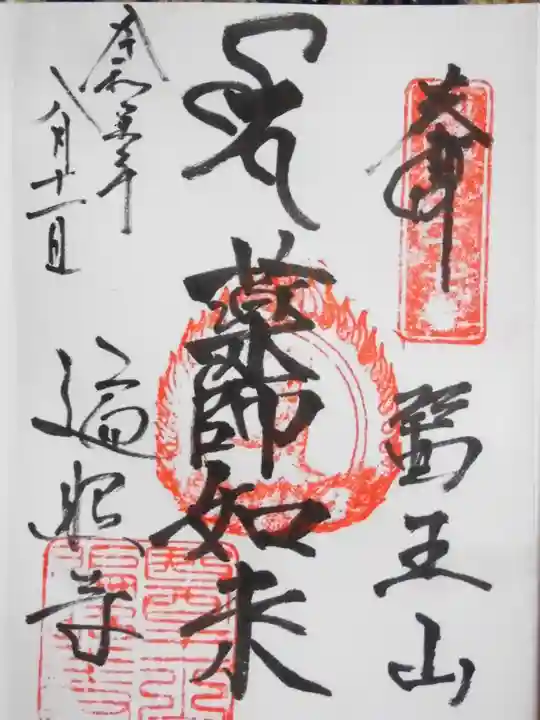 奉拝
醫王山
薬師如来
令和元年
八月十一日
遍照寺